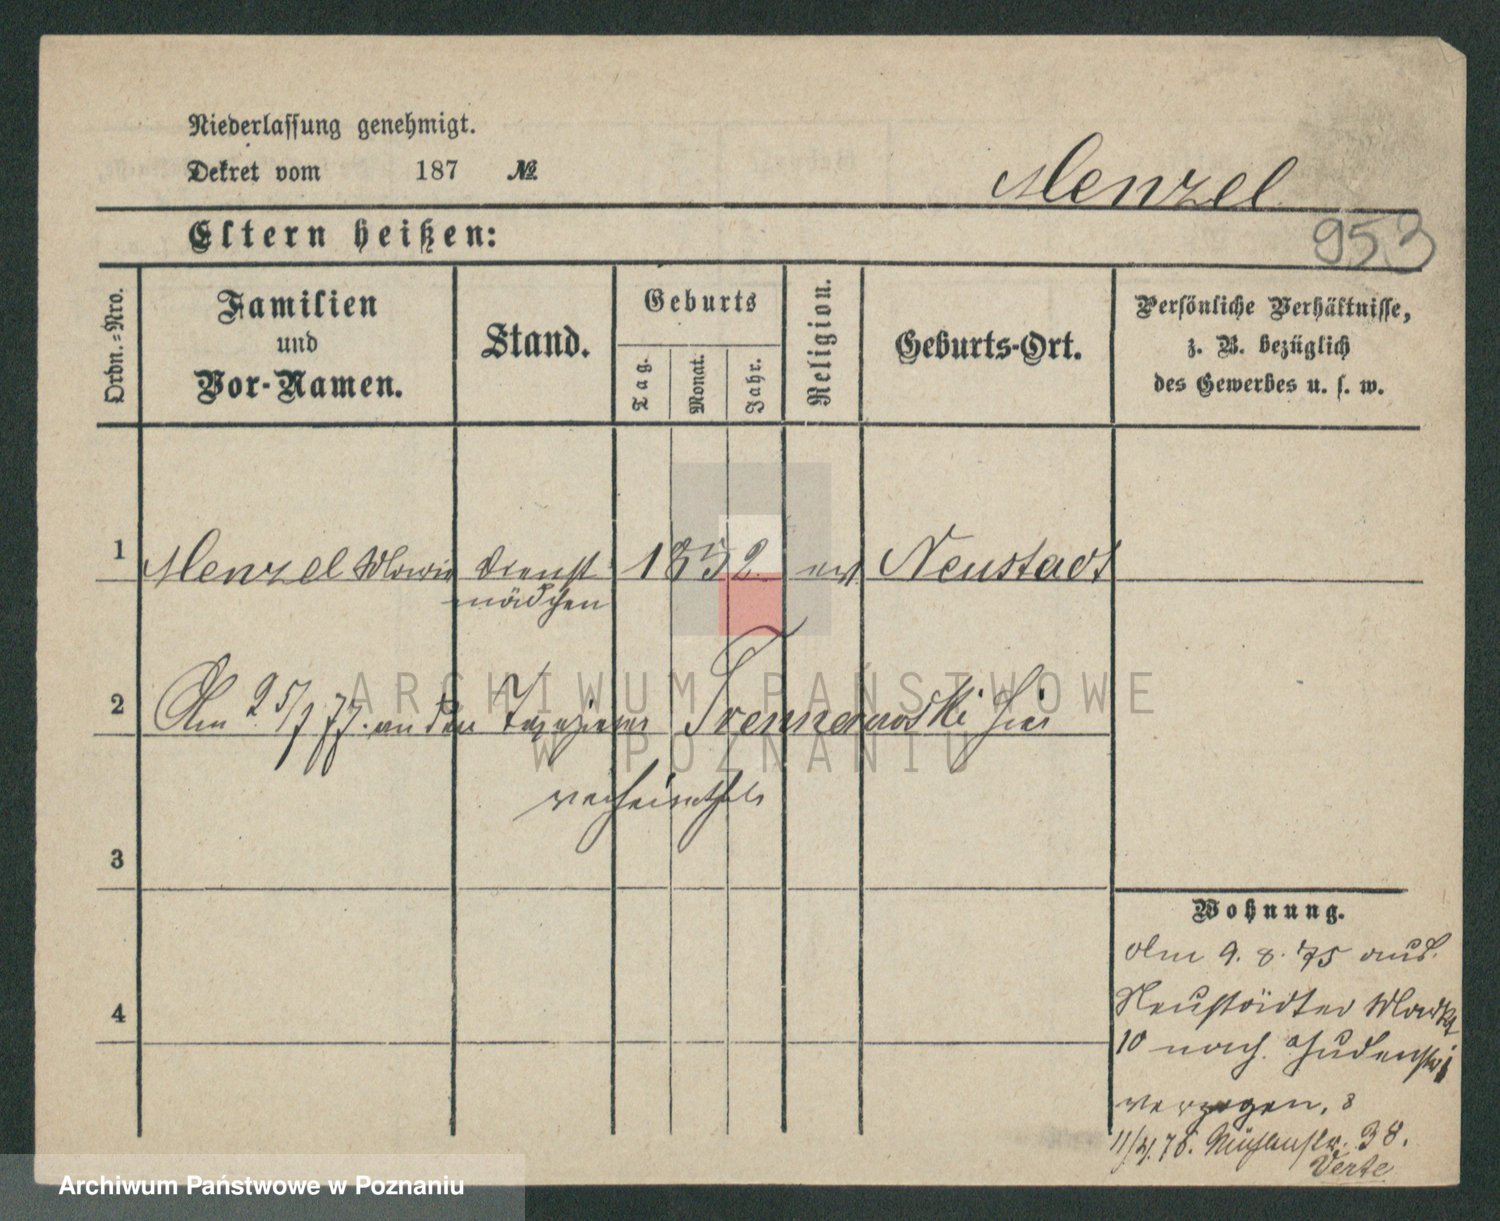 Niederlassung genehmigt.
Dekret vom 187 №
Menzel
Eltern heißen:
953
Ordn.-Nro.
Familien
und
Vor-Namen.
Stand.
Geburts
Tag.
Monat.
Jahr.
Religion.
Geburts-Ort.
Persönliche Verhältnisse,
z. B. bezüglich
des Gewerbes u. s. w.
1 Menzel Marie Dienst 1852. ev Neustadt
mädchen
ARCHIWUM PAŃSTWOWE
2 Am 25/ 77. an den hier
W POZNANIU
verheirathet
3
Wohnung.
Am 9. 8. 75 aus.
Neustädter Markt
4
10 nach Judenstr
verzogen. 8
11/4. 76. Mühlenstr. 38.
Verte
Archiwum Państwowe w Poznaniu